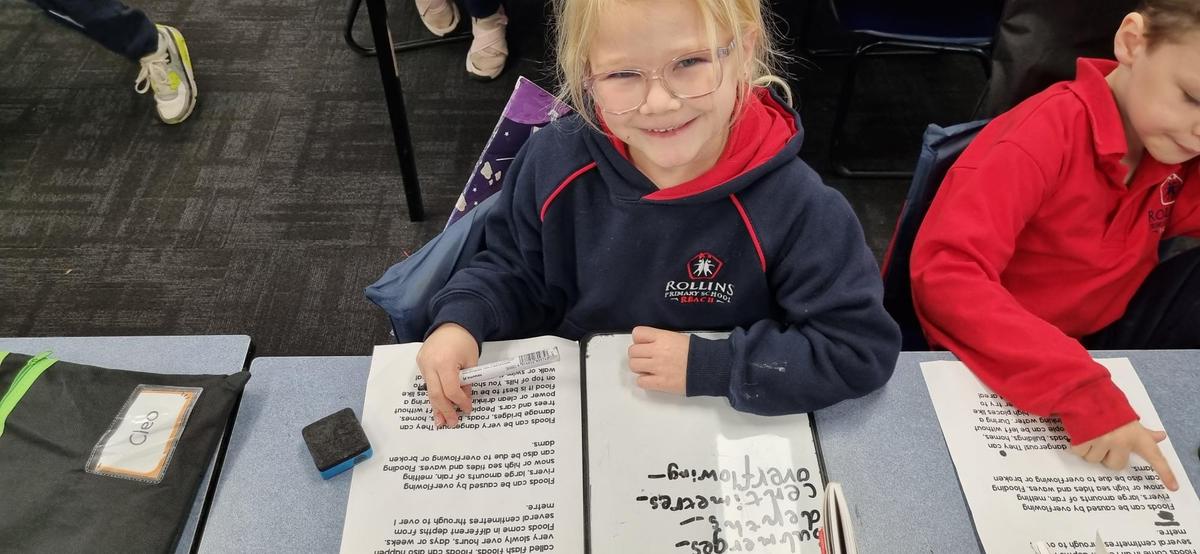 ROLLINS
PRIMARY SCHOOL
REACH
ROLL
Cleo
called flash floods. Floods can also happen
very slowly over hours, days or weeks.
Floods come in different depths from
several centimetres through to over 1
metre.
Floods can be caused by overflowing
rivers, large amounts of rain, melting
snow or high sea tides and waves. Flooding
can also be due to overflowing or broken
dams.
Floods can be very dangerous! They can
damage bridges, roads, homes,
trees and cars. People without
power or clean drinking during a
flood it is best to be like
on top of hills. You shou to
walk or
submerges-
depths-
centimetres-
overflowing-
through to over
Floods can be caused by overflowing
rivers, large amounts of rain, melting
snow or high sea tides and waves. Flooding
can also be due to overflowing or
dams.
dangerous! They can
buildings, homes,
can be left without
water. During a
try to
high places like